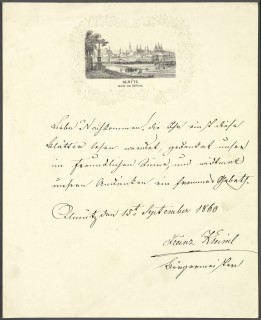 OLMÜTZ
Liebe Nachkommen! die Ihr einst diese
Blätter lesen werdet, gedenket unser
in freundlichem Sinne, und widmet
unserm Andenken ein frommes Gebeth.
Olmütz den 15t September 1860
Franz
Bürgermeister